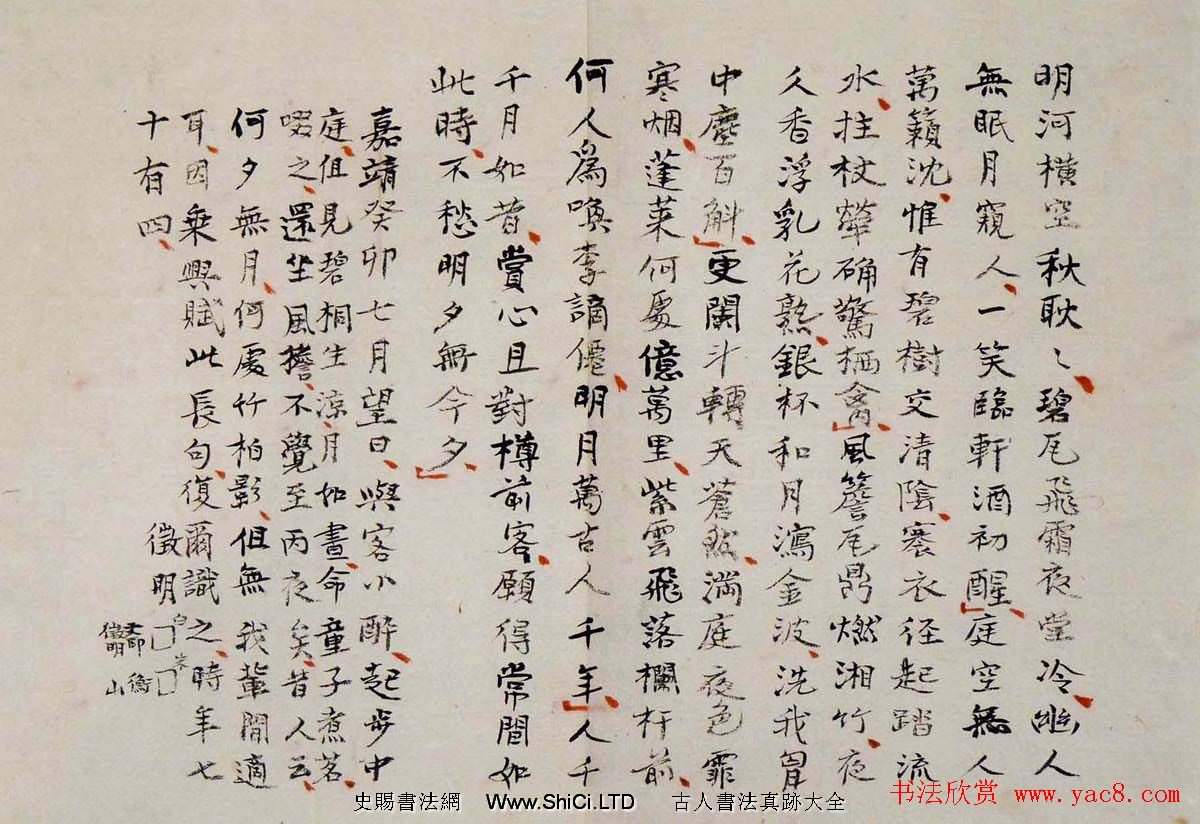 明河橫空秋耿〻碧瓦飛霜夜堂冷、幽人
無眠月窺人、一笑臨軒酒初醒、庭空無人
萬籟沈、惟有碧樹交清陰、褰衣徑起踏流
水、拄杖犖确驚栖禽、風簷瓦鼎燃湘竹、夜
久香浮乳花熟、銀杯和月瀉金波、洗我胷
中塵百斛、更闌斗轉天蒼然、滿庭夜色霏
寒烟、蓬萊何處億萬里、紫雲飛落欄杆前、
何人爲喚李謫僊、明月萬古人千年、人千
千月如昔、賞心且對樽前客、願得常閒如
此時、不愁明夕無今夕、
嘉靖癸卯七月望日、與客小酔、起步中
庭、但見碧桐生涼、月如晝、命童子煮茗、
啜之、還坐風簷、不覺至丙夜矣、昔人云、
何夕無月、何處竹柏影、但無我輩閒適
耳、因乘興賦此長句、復爾識之、時年七
十有四、
徵明
白
朱
文印
徵明
衡
山
史賜書法網 Www.ShiCi.LTD 古人書法真跡大全
书法欣赏 www.yac8.com